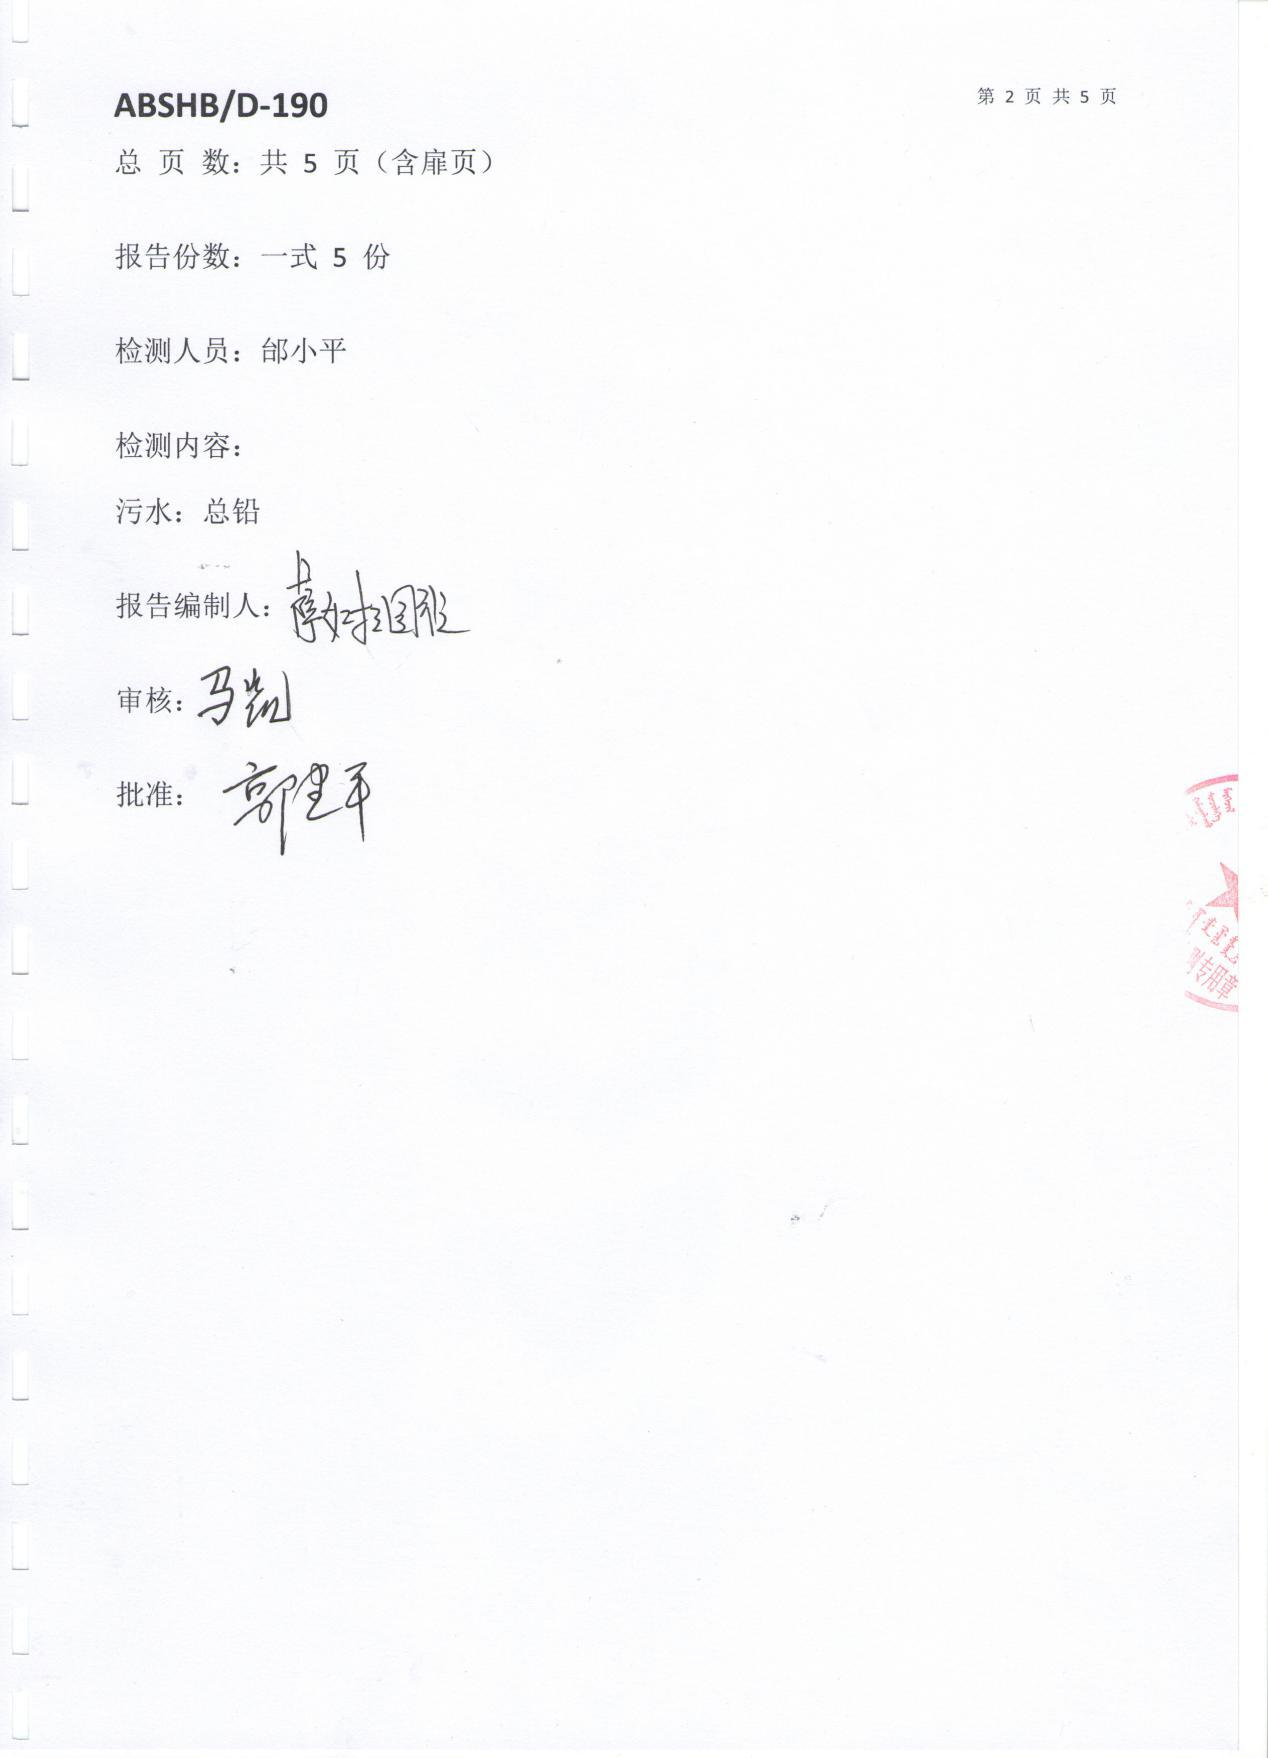 ABSHB/D-190
第 2 页 共 5 页
总 页 数：共 5 页（含扉页）
报告份数：一式 5 份
检测人员：邰小平
检测内容：
污水：总铅
报告编制人：
审核：马凯
批准：郭建平
专用章